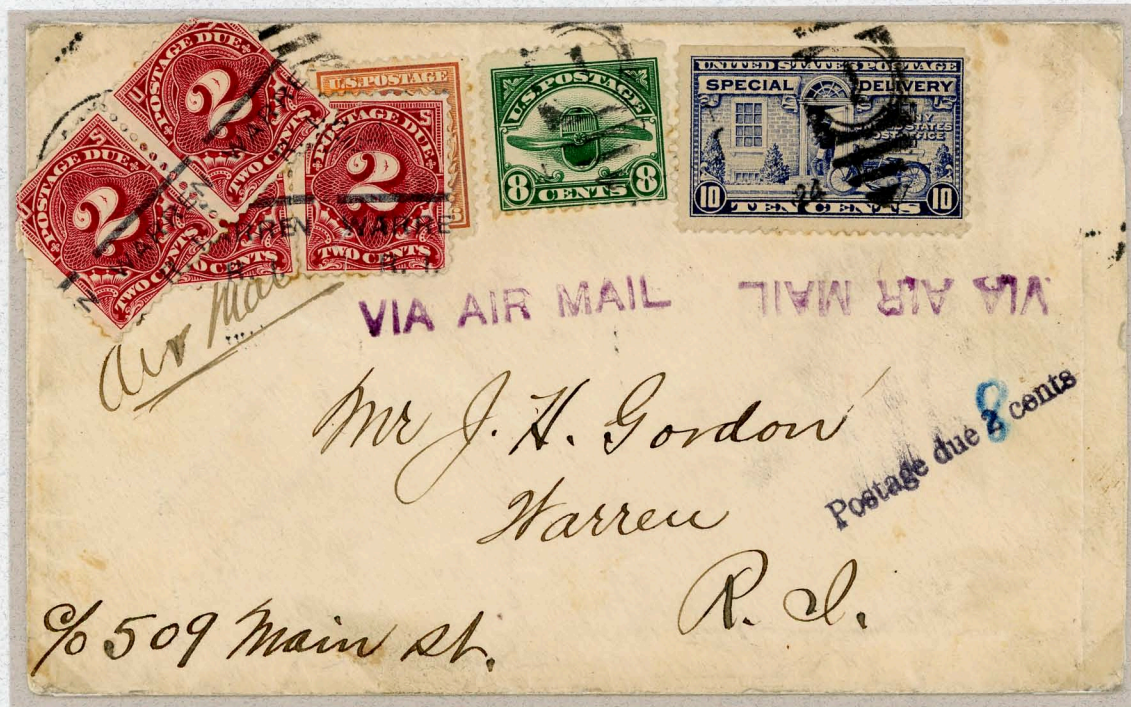 POSTAGE DUE
2
TWO CENTS
POSTAGE DUE
2
TWO CENTS
WARREN
R. I.
U.S. POSTAGE
6
POSTAGE DUE
2
TWO CENTS
WARRE
R. I.
U.S. POSTAGE
8 CENTS 8
UNITED STATES POSTAGE
SPECIAL DELIVERY
10 TEN CENTS 10
Air Mail
VIA AIR MAIL
VIA AIR MAIL
Postage due 2 cents
8
Mr J. H. Gordon
Warren
R. I.
c/o 509 Main St.